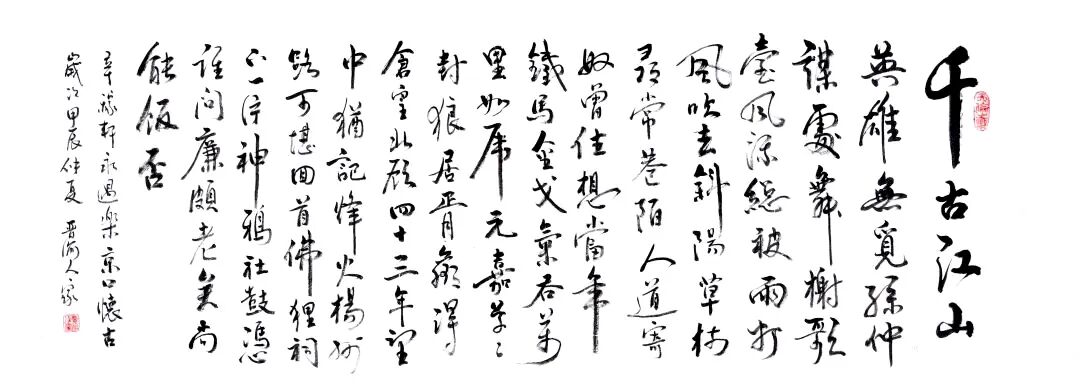 千古江山
英雄無覓孫仲
謀處舞榭歌
臺風流總被雨打
風吹去斜陽草樹
尋常巷陌人道寄
奴曾住想當年
鐵馬金戈氣吞萬
里如虎元嘉草々
封狼居胥贏得
倉皇北顧四十三年望
中猶記烽火楊州
路可堪回首佛狸祠
下一片神鴉社鼓憑
誰問廉頗老矣尚
能飯否
辛稼軒永遇樂京口懷古
歲次甲辰仲夏 晋渝人家